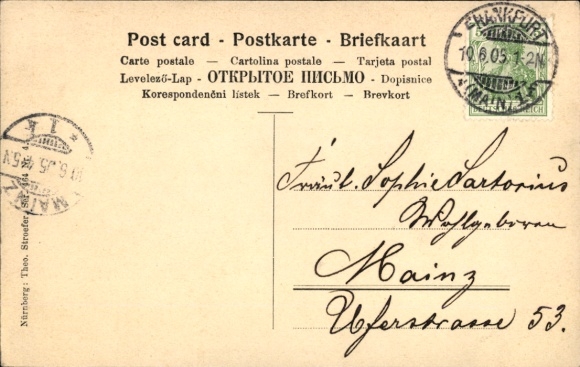 Post card - Postkarte - Briefkaart
Carte postale — Cartolina postale — Tarjeta postal
Levelező-Lap - ОТКРЫТОЕ ПИСЬМО - Dopisnice
Korespondenční lístek — Brefkort — Brevkort
FRANKFURT
10.6.05. 1-2N
(MAIN) 1
MAINZ
6.05
1k
Fräul. Sophie Sartorius
Wohlgeboren
Mainz
Uferstrasse 53.
Nürnberg: Theo. Stroefer